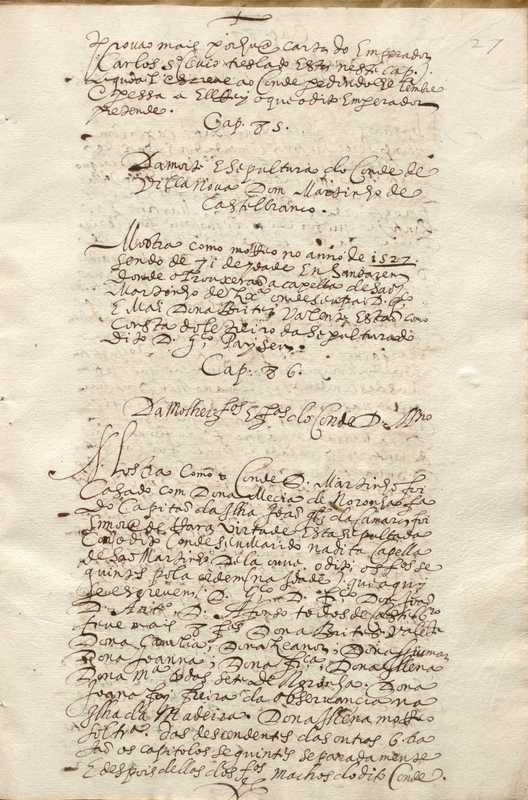 27
provao mais por hua carta do Emperador
Carlos 5º cuio treslado esta neste cap.
o qual escreve ao Conde pedindo lhe lembre
o que o dito Emperador
pretende.
Cap. 85.
Da morte E sepultura do Conde de
Villa nova Dom Martinho de
Castelbranco.
Mostra como morreo no anno de 1527
sendo de 71 de ydade En Santarem
donde o trouxerão a capella de São
Martinho de Lxª onde seu pai D. Gº
E Mai Dona Brites Valente Estão como
Consta do letreiro da sepultura do
dito D. Gº Pay seu.
Cap. 86.
Da Molher fºs E fªs do Conde D. Mno
Mostra como o Conde D. Martinho foi
Casado com Dona Mecia de Noronha fª
do Capitão da Ilha João Glz da Camara foi
Smorª de Rara Virtude Esta sepultada
Com o dito Conde seu Marido na dita Capella
de São Martinho. Dela ouve o dito, os fºs se-
guintes pola ordem na jdade, que aquy
se escrevem. D. Gº D. Frco Dom João
D. Antº D. Afonso todos de castelbrco
teve mais 8 fªs Dona Brites Valente
Dona Camilia, Dona Leanor, Dona Guimar
Dona Joanna, Dona fca, Dona Ilena
Dona Mª todas sete de Noronha. Dona
Joana foy freira da observancia na
Ilha da Madeira. Dona Ilena morreo
solteira das descendentes das outras 6. tra
tão os capitolos seguintes separadamente
E despois dellas dos fºs machos do dito Conde.